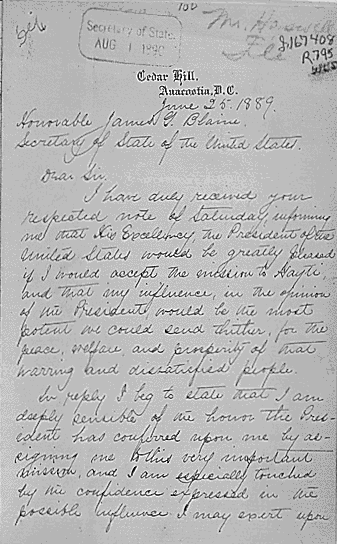 100
Secretary of State.
AUG 1 1890
Mr.
File
2,167408
R795
Cedar Hill.
Anacostia, D.C.
June 25. 1889.
Honorable James G. Blaine.
Secretary of State of the United States.
Dear Sir.
I have duly received your
respected note of Saturday, informing
me that His Excellency, the President of the
United States would be greatly pleased
if I would accept the mission to Hayti,
and that my influence, in the opinion
of the President, would be the most
potent we could send thither, for the
peace, welfare, and prosperity of that
warring and dissatisfied people.
In reply I beg to state that I am
deeply sensible of the honor the Pres-
ident has conferred upon me by as-
signing me to this very important
mission, and I am especially touched
by the confidence expressed in the
possible influence I may exert upon